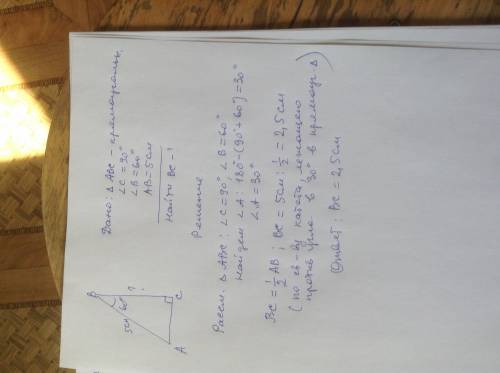 B
5см
60°
?
A
C
Дано: Δ ABC - прямоугольн.
∠C = 90°
∠B = 60°
AB = 5 см
Найти BC - ?
Решение
Рассм. Δ ABC: ∠C = 90°, ∠B = 60°
Найдем ∠A: 180°-(90°+60°)=30°
∠A = 30°
BC = 1/2 AB; BC = 5см : 1/2 = 2,5 см
(по св-ву катета, лежащего
против угла в 30° в прямоуг. Δ)
Ответ: BC = 2,5 см